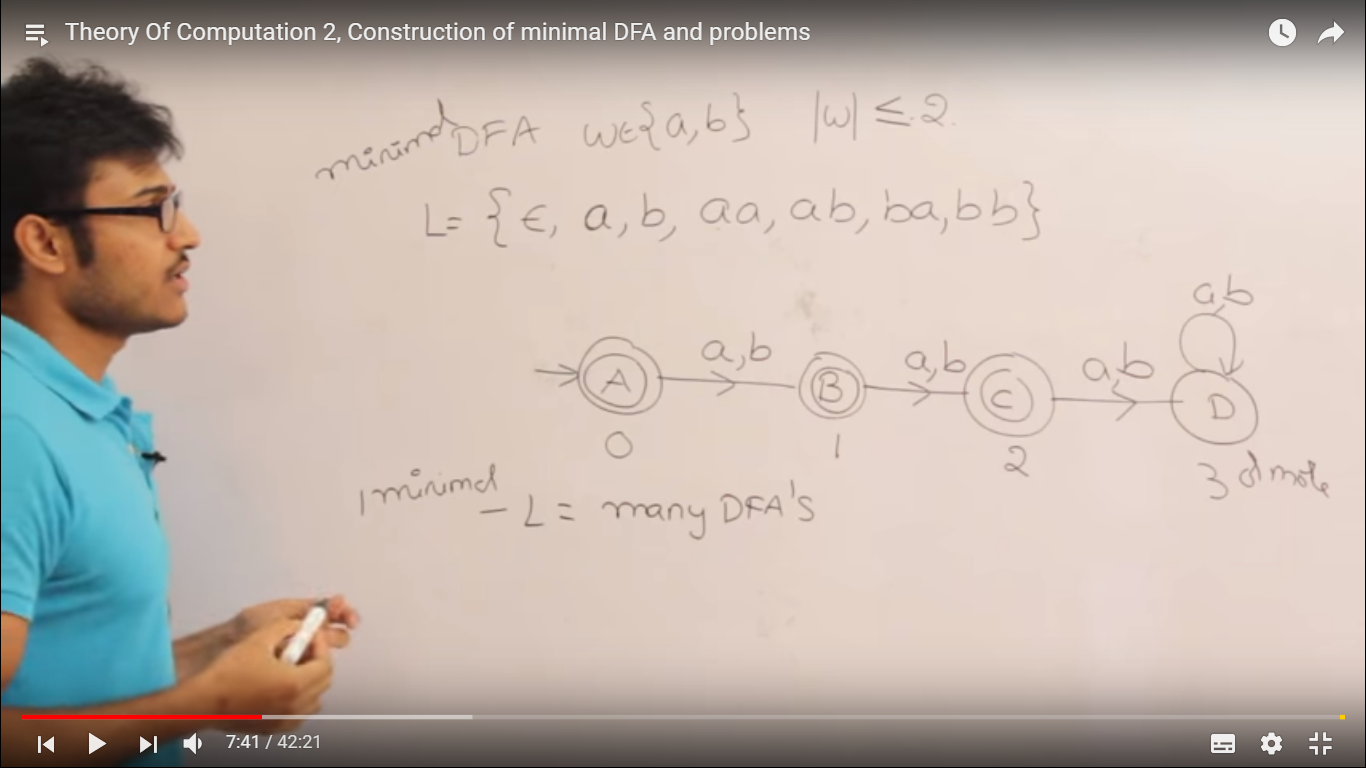 Theory Of Computation 2, Construction of minimal DFA and problems
minimal DFA w∈{a,b} |w| ≤ 2
L= {ϵ, a, b, aa, ab, ba, bb}
ab
a,b a,b a,b
A B C D
0 1 2 3 or more
1 minimal
– L = many DFA's
7:41 / 42:21